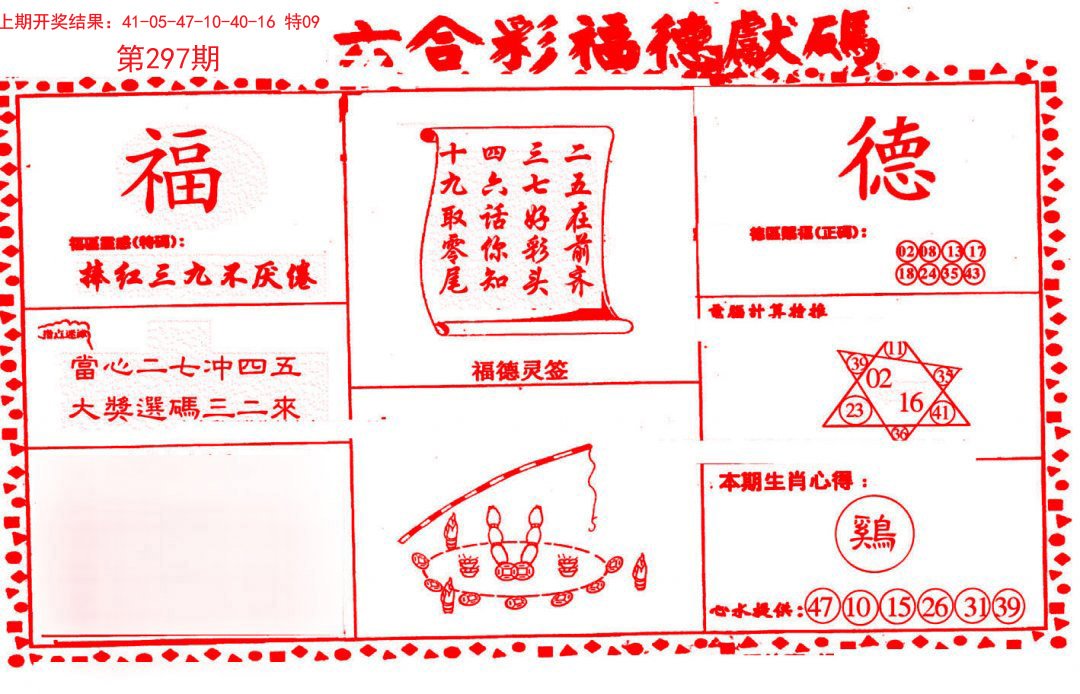 上期开奖结果：41-05-47-10-40-16 特09
第297期
六合彩福德獻碼
福
福區靈感(特碼)：
捧红三九不厌倦
當心二七冲四五
大獎選碼三二來
二五在前齐
三七好彩头
四六话你知
十九取零尾
福德灵签
德
德區賜福(正碼)：
02 08 13 17
18 24 35 43
電腦計算特推
11
39 02 35
23 16 41
36
本期生肖心得：
鷄
心水提供：47 10 15 26 31 39